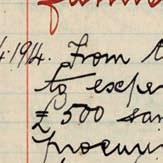 4.1914. From t
to expe
£500 san
procur